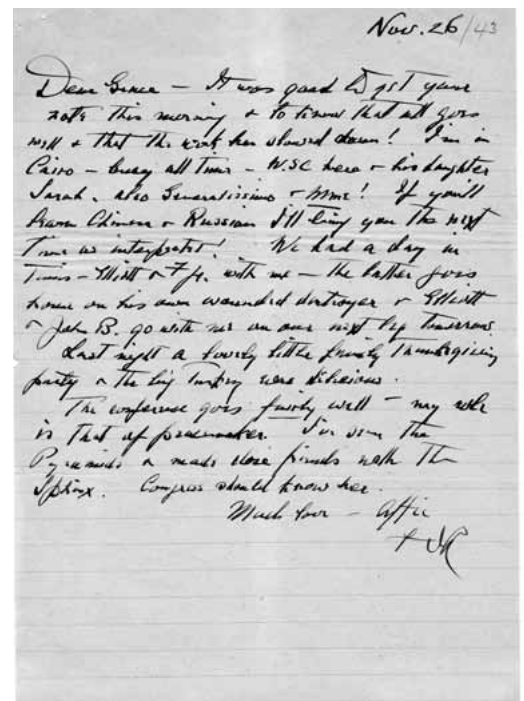 Nov. 26/43
Dear Grace — It was good to get your
note this morning & to know that all goes
well & that the work has slowed down! I'm in
Cairo — busy all time — W.S.C. here & his daughter
Sarah, also Generalissimo & Mme! If you'll
learn Chinese & Russian I'll bring you the next
time as interpreter! We had a day in
Tunis — Elliott & F Jr. with me — the latter goes
home on his own wounded destroyer & Elliott
& John B. go with me on our next leg tomorrow.
Last night a lovely little family Thanksgiving
party & the big Turkey were delicious.
The conference goes fairly well — my role
is that of peacemaker. I've seen the
Pyramids & made close friends with the
Sphinx. Congress should know her.
Much love — Affec
FDR